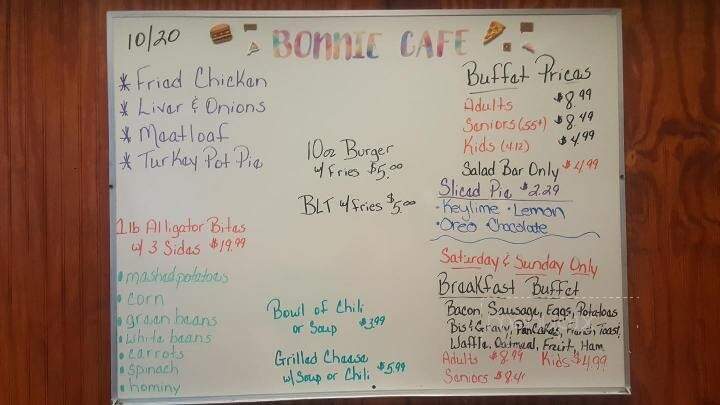 10/20
BONNIE CAFE
* Fried Chicken
* Liver & Onions
* Meatloaf
* Turkey Pot Pie
1lb Alligator Bites
w/ 3 Sides $19.99
• mashed potatoes
• corn
• green beans
• white beans
• carrots
• spinach
• hominy
10oz Burger
w/ Fries $5.00
BLT w/ fries $5.00
Bowl of Chili
or Soup $3.99
Grilled Cheese
w/ Soup or Chili $5.99
Buffet Prices
Adults $8.99
Seniors (55+) $8.49
Kids (4-12) $4.99
Salad Bar Only $4.99
Sliced Pie $2.29
• Keylime • Lemon
• Oreo • Chocolate
Saturday & Sunday Only
Breakfast Buffet
Bacon, Sausage, Eggs, Potatoes
Bis & Gravy, Pancakes, French Toast,
Waffle, Oatmeal, Fruit, Ham
Adults $8.99 Kids $4.99
Seniors